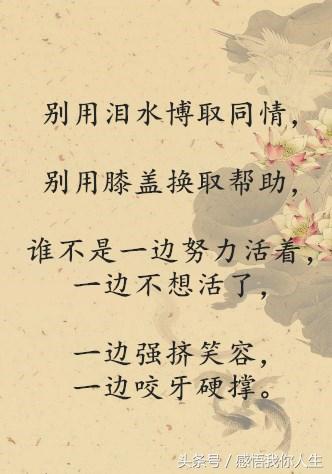 别用泪水博取同情，
别用膝盖换取帮助，
谁不是一边努力活着，
一边不想活了，
一边强挤笑容，
一边咬牙硬撑。
头条号/感悟我你人生